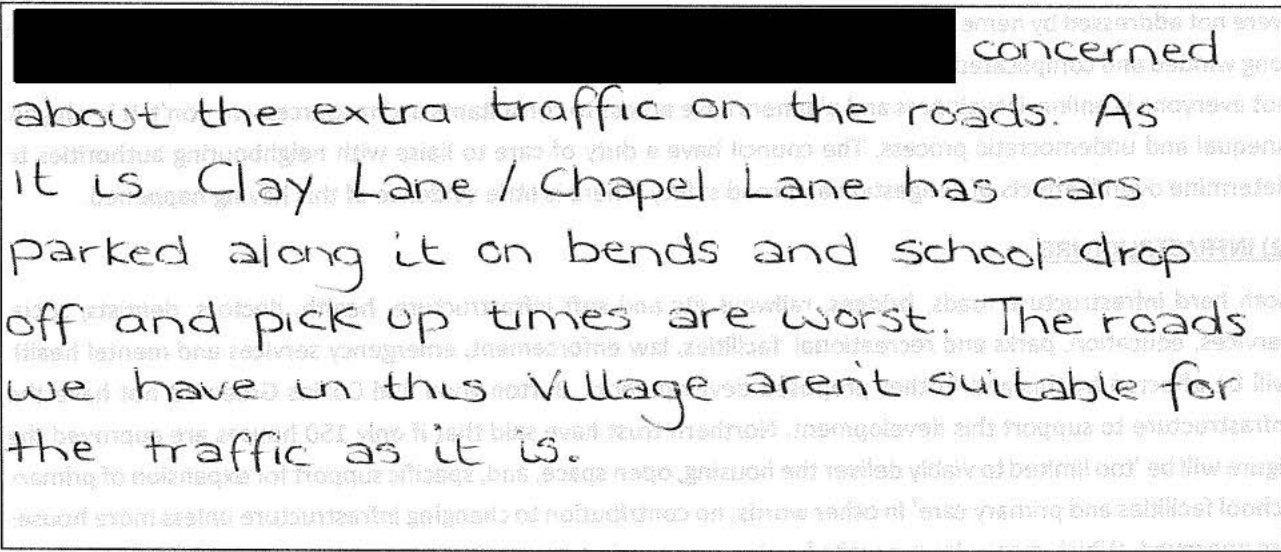 concerned
about the extra traffic on the roads. As
it is Clay Lane / Chapel Lane has cars
parked along it on bends and school drop
off and pick up times are worst. The roads
we have in this Village are'it suitable for
the traffic as it is.